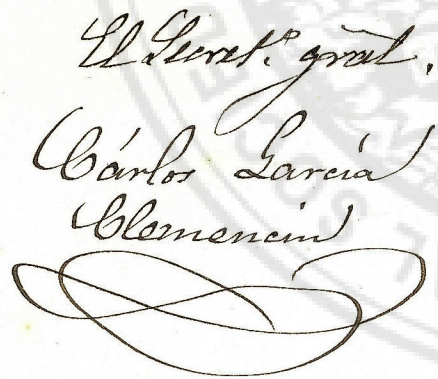 El Secret.º gral.
Cárlos García
Clemencin